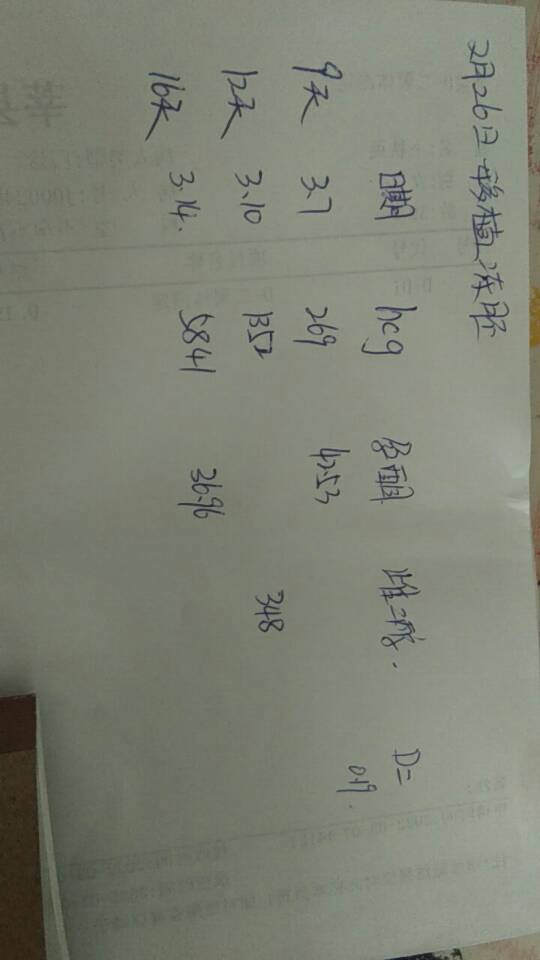 2月26日移植冻胚
日期 hcg 孕酮 雌二醇. D二
9天 3.7 269 42.53 0.19.
12天 3.10 1352 348
16天 3.14. 5841 36.96